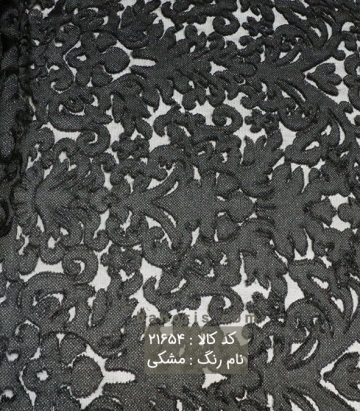 کد کالا : ۲۱۶۵۴
نام رنگ : مشکی